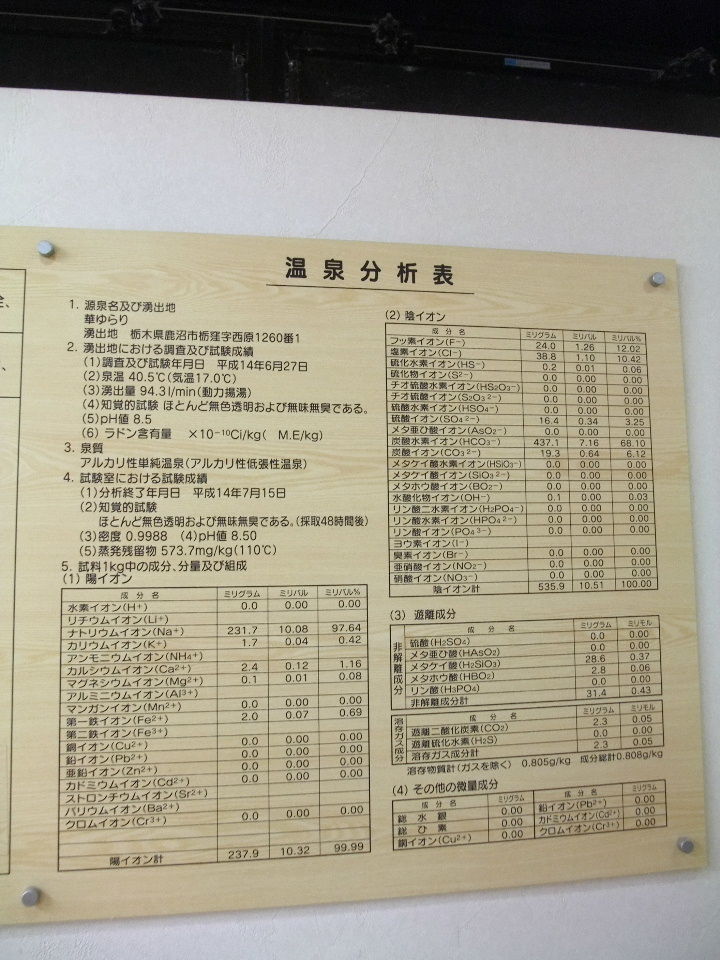 温泉分析表
1. 源泉名及び湧出地
華ゆらり
湧出地 栃木県鹿沼市栃窪字西原1260番1
2. 湧出地における調査及び試験成績
(1)調査及び試験年月日 平成14年6月27日
(2)泉温 40.5℃(気温17.0℃)
(3)湧出量 94.3l/min(動力揚湯)
(4)知覚的試験 ほとんど無色透明および無味無臭である。
(5)pH値 8.5
(6) ラドン含有量 ×10-10Ci/kg( M.E/kg)
3. 泉質
アルカリ性単純温泉(アルカリ性低張性温泉)
4. 試験室における試験成績
(1)分析終了年月日 平成14年7月15日
(2)知覚的試験
ほとんど無色透明および無味無臭である。(採取48時間後)
(3)密度 0.9988 (4)pH値 8.50
(5)蒸発残留物 573.7mg/kg(110℃)
5. 試料1kg中の成分、分量及び組成
(1) 陽イオン
成分名 ミリグラム ミリバル ミリバル%
水素イオン(H+) 0.0 0.00 0.00
リチウムイオン(Li+)
ナトリウムイオン(Na+) 231.7 10.08 97.64
カリウムイオン(K+) 1.7 0.04 0.42
アンモニウムイオン(NH4+)
カルシウムイオン(Ca2+) 2.4 0.12 1.16
マグネシウムイオン(Mg2+) 0.1 0.01 0.08
アルミニウムイオン(Al3+)
マンガンイオン(Mn2+) 0.0 0.00 0.00
第一鉄イオン(Fe2+) 2.0 0.07 0.69
第二鉄イオン(Fe3+)
銅イオン(Cu2+) 0.0 0.00 0.00
鉛イオン(Pb2+) 0.0 0.00 0.00
亜鉛イオン(Zn2+) 0.0 0.00 0.00
カドミウムイオン(Cd2+) 0.0 0.00 0.00
ストロンチウムイオン(Sr2+)
バリウムイオン(Ba2+)
クロムイオン(Cr3+) 0.0 0.00 0.00
陽イオン計 237.9 10.32 99.99
(2) 陰イオン
成分名 ミリグラム ミリバル ミリバル%
フッ素イオン(F-) 24.0 1.26 12.02
塩素イオン(Cl-) 38.8 1.10 10.42
硫化水素イオン(HS-) 0.2 0.01 0.06
硫化物イオン(S2-) 0.0 0.00 0.00
チオ硫酸水素イオン(HS2O3-) 0.0 0.00 0.00
チオ硫酸イオン(S2O32-) 0.0 0.00 0.00
硫酸水素イオン(HSO4-) 0.0 0.00 0.00
硫酸イオン(SO42-) 16.4 0.34 3.25
メタ亜ひ酸イオン(AsO2-) 0.0 0.00 0.00
炭酸水素イオン(HCO3-) 437.1 7.16 68.10
炭酸イオン(CO32-) 19.3 0.64 6.12
メタケイ酸水素イオン(HSiO3-) 0.0 0.00 0.00
メタケイ酸イオン(SiO32-) 0.0 0.00 0.00
メタホウ酸イオン(BO2-) 0.0 0.00 0.00
水酸化物イオン(OH-) 0.1 0.00 0.03
リン酸二水素イオン(H2PO4-) 0.0 0.00 0.00
リン酸水素イオン(HPO42-) 0.0 0.00 0.00
リン酸イオン(PO43-) 0.0 0.00 0.00
ヨウ素イオン(I-)
臭素イオン(Br-) 0.0 0.00 0.00
亜硝酸イオン(NO2-) 0.0 0.00 0.00
硝酸イオン(NO3-) 0.0 0.00 0.00
陰イオン計 535.9 10.51 100.00
(3) 遊離成分
非解離成分
成分名 ミリグラム ミリモル
硫酸(H2SO4) 0.0 0.00
メタ亜ひ酸(HAsO2) 0.0 0.00
メタケイ酸(H2SiO3) 28.6 0.37
メタホウ酸(HBO2) 2.8 0.06
リン酸(H3PO4) 0.0 0.00
非解離成分計 31.4 0.43
溶存ガス成分
成分名 ミリグラム ミリモル
遊離二酸化炭素(CO2) 2.3 0.05
遊離硫化水素(H2S) 0.0 0.00
溶存ガス成分計 2.3 0.05
溶存物質計(ガスを除く) 0.805g/kg 成分総計0.808g/kg
(4) その他の微量成分
成分名 ミリグラム 成分名 ミリグラム
総水銀 0.00 鉛イオン(Pb2+) 0.00
総ひ素 0.00 カドミウムイオン(Cd2+) 0.00
銅イオン(Cu2+) 0.00 クロムイオン(Cr3+) 0.00